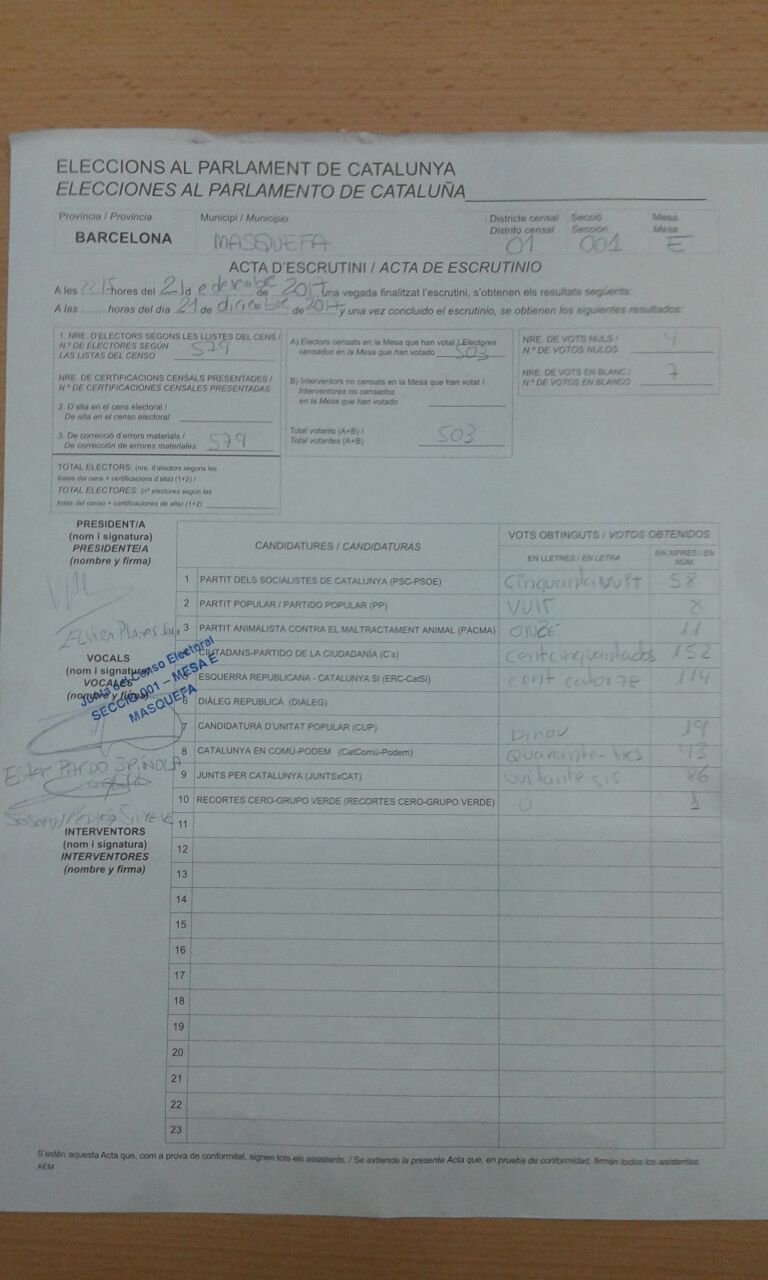 ELECCIONS AL PARLAMENT DE CATALUNYA
ELECCIONES AL PARLAMENTO DE CATALUÑA
Província / Provincia
BARCELONA
Municipi / Municipio
MASQUEFA
Districte censal
Distrito censal
01
Secció
Sección
001
Mesa
Mesa
E
ACTA D'ESCRUTINI / ACTA DE ESCRUTINIO
A les hores del 21 de desembre de 2017 una vegada finalitzat l'escrutini, s'obtenen els resultats següents:
A las horas del día 21 de diciembre de 2017 y una vez concluido el escrutinio, se obtienen los siguientes resultados:
1. NRE. D'ELECTORS SEGONS LES LLISTES DEL CENS /
N.º DE ELECTORES SEGÚN
LAS LISTAS DEL CENSO 579
NRE. DE CERTIFICACIONS CENSALS PRESENTADES /
N.º DE CERTIFICACIONES CENSALES PRESENTADAS
2. D'alta en el cens electoral /
De alta en el censo electoral:
3. De correcció d'errors materials /
De corrección de errores materiales: 579
TOTAL ELECTORS: (nre. d'electors segons les
llistes del cens + certificacions d'alta) (1+2) /
TOTAL ELECTORES: (nº electores según las
listas del censo + certificaciones de alta) (1+2)
A) Electors censats en la Mesa que han votat / Electores
censados en la Mesa que han votado 503
B) Interventors no censats en la Mesa que han votat /
Interventores no censados
en la Mesa que han votado
Total votants (A+B) /
Total votantes (A+B) 503
NRE. DE VOTS NULS /
N.º DE VOTOS NULOS
NRE. DE VOTS EN BLANC /
N.º DE VOTOS EN BLANCO 7
PRESIDENT/A
(nom i signatura)
PRESIDENTE/A
(nombre y firma)
Elvira Planas
VOCALS
(nom i signatura)
VOCALES
(nombre y firma)
Junta del Censo Electoral
SECCIO 001 – MESA E
MASQUEFA
Ester PARDO SPÍNDOLA
INTERVENTORS
(nom i signatura)
INTERVENTORES
(nombre y firma)
CANDIDATURES / CANDIDATURAS
VOTS OBTINGUTS / VOTOS OBTENIDOS
EN LLETRES / EN LETRA
EN XIFRES / EN NÚM.
1 PARTIT DELS SOCIALISTES DE CATALUNYA (PSC-PSOE) Cinquanta vuit 58
2 PARTIT POPULAR / PARTIDO POPULAR (PP) VUIT 8
3 PARTIT ANIMALISTA CONTRA EL MALTRACTAMENT ANIMAL (PACMA) ONCE 11
CIUTADANS-PARTIDO DE LA CIUDADANÍA (C's) cent cinquantados 152
ESQUERRA REPUBLICANA - CATALUNYA SÍ (ERC-CatSí) cent catorze 114
6 DIÀLEG REPUBLICÀ (DIÀLEG)
7 CANDIDATURA D'UNITAT POPULAR (CUP) Dinou 19
8 CATALUNYA EN COMÚ-PODEM (CatComú-Podem) Quaranta-tres 43
9 JUNTS PER CATALUNYA (JUNTSxCAT) vuitanta sis 86
10 RECORTES CERO-GRUPO VERDE (RECORTES CERO-GRUPO VERDE) 1
11
12
13
14
15
16
17
18
19
20
21
22
23
S'estén aquesta Acta que, com a prova de conformitat, signen tots els assistents. / Se extiende la presente Acta que, en prueba de conformidad, firman todos los asistentes.
AEM